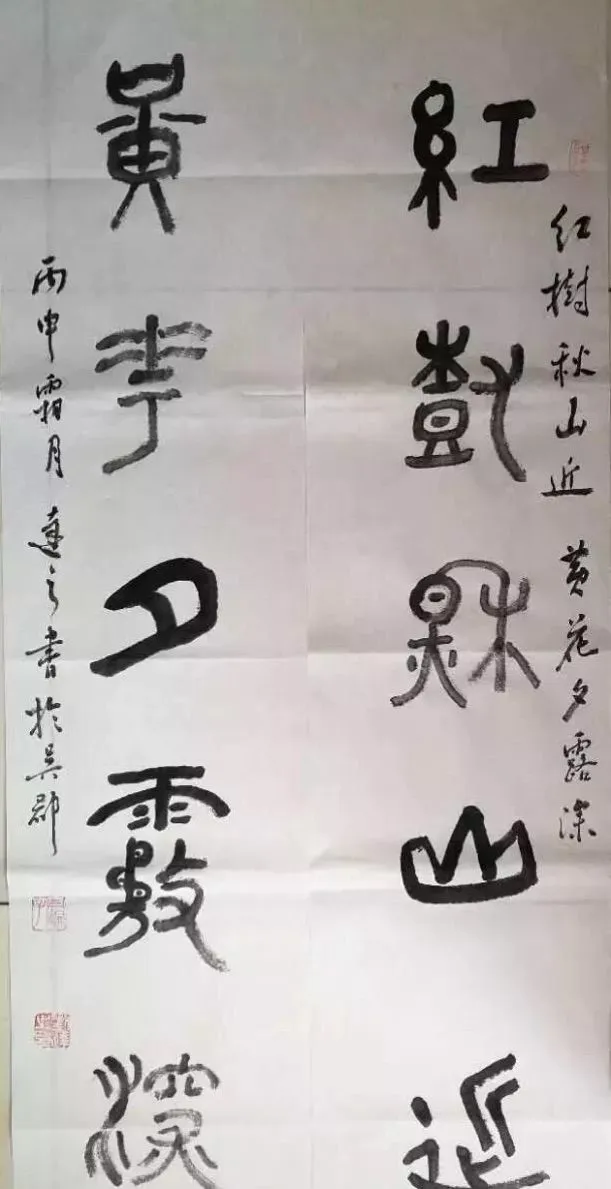 红樹秋山近 黄花夕露深
紅樹秋山近
黃花夕露深
丙申霜月達之書於吴郡